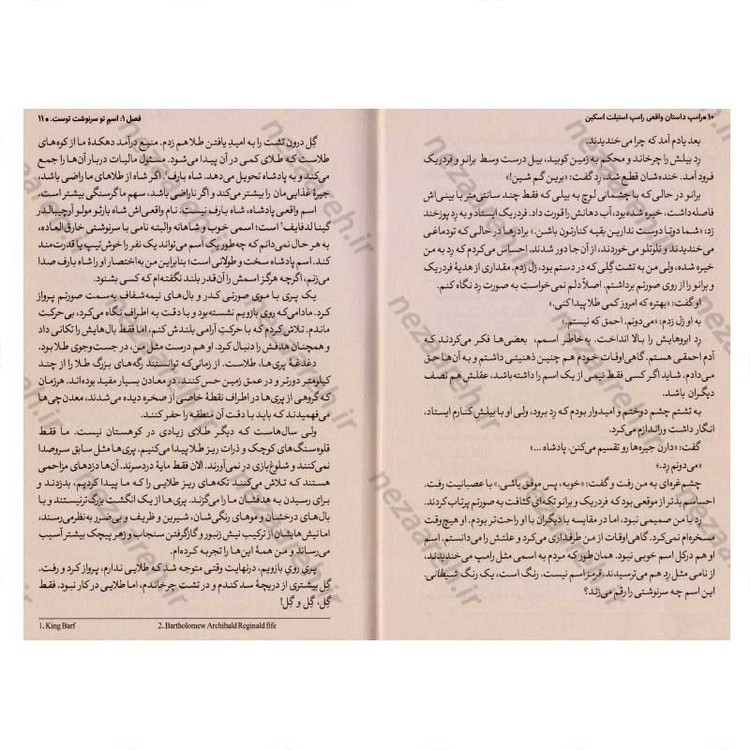 ۱۰ • رامپ داستان واقعی رامپ استیلت اسکین
بعد یادم آمد که چرا می‌خندیدند.
رِد بیلش را چرخاند و محکم به زمین کوبید، بیل درست وسط برانو و فردریک
فرود آمد. خنده‌شان قطع شد. رِد گفت: «برین گم شین!»
برانو در حالی که با چشمانی لوچ به بیلی که فقط چند سانتی‌متر با بینی‌اش
فاصله داشت، خیره شده بود، آب دهانش را قورت داد. فردریک ایستاد و به رِد پوزخند
زد: «شما دو تا دوست ندارین بقیه کنارتون باشن.» برادرها در حالی که تودماغی
می‌خندیدند و تلوتلو می‌خوردند، از آن‌جا دور شدند. احساس می‌کردم که رِد به من
خیره شده، ولی من به تشت گِلی که در دستم بود، زل زدم. مقداری از هدیهٔ فردریک
و برانو را از روی صورتم برداشتم. اصلاً دلم نمی‌خواست به صورت رِد نگاه کنم.
او گفت: «بهتره که امروز کمی طلا پیدا کنی.»
به او زل زدم: «می‌دونم. احمق که نیستم.»
رِد ابروهایش را بالا انداخت. به‌خاطر اسمم، بعضی‌ها فکر می‌کردند که
آدم احمقی هستم. گاهی اوقات خودم هم چنین ذهنیتی داشتم و به آن‌ها حق
می‌دادم. شاید اگر کسی فقط نیمی از یک اسم را داشته باشد، عقلش هم نصف
دیگران باشد.
به تشتم چشم دوختم و امیدوار بودم که رِد برود، ولی او با بیلش کنارم ایستاد،
انگار داشت وراندازم می‌کرد.
گفت: «دارن جیره‌ها رو تقسیم می‌کنن. پادشاه ...»
«می‌دونم رِد.»
چشم‌غره‌ای به من رفت و گفت: «خوبه، پس موفق باشی.» با عصبانیت رفت.
احساسم بدتر از موقعی بود که فردریک و برانو تکه‌ای کثافت به صورتم پرتاب کردند.
رِد با من صمیمی نبود، اما در مقایسه با دیگران با او راحت‌تر بودم. او هیچ‌وقت
مسخره‌ام نمی‌کرد. گاهی اوقات از من طرفداری می‌کرد و علتش را می‌دانستم. اسم
او هم در کل اسم خوبی نبود. همان‌طور که مردم به اسمی مثل رامپ می‌خندیدند،
از نامی مثل رِد هم می‌ترسیدند. قرمز اسم نیست. رنگ است، یک رنگ شیطانی.
این اسم چه سرنوشتی را رقم می‌زند؟
فصل ۱: اسم تو سرنوشت توست. • ۱۱
گِل درون تشت را به امید یافتن طلا هم زدم. منبع درآمد دهکدهٔ ما از کوه‌های
طلاست که طلای کمی در آن پیدا می‌شود. مسئول مالیات دربار آن‌ها را جمع
می‌کند و به پادشاه تحویل می‌دهد. شاه بارف.۱ اگر شاه از طلاهای ما راضی باشد،
جیرهٔ غذایی‌مان را بیشتر می‌کند و اگر ناراضی باشد، سهم ما گرسنگی بیشتر است.
اسم واقعی پادشاه، شاه بارف نیست. نام واقعی‌اش شاه بارثو مولو آرچیبالد ر
گینا لد فایف۲ است؛ اسمی خوب و شاهانه والبته نامی با سرنوشتی خارق‌العاده،
به هر حال نمی‌دانم که چه‌طور یک اسم می‌تواند یک نفر را خوش‌تیپ یا قدرت‌مند
کند. اسم پادشاه سخت و طولانی است؛ بنابراین من به‌اختصار او را شاه بارف صدا
می‌زنم، اگرچه هرگز اسمش را آن‌قدر بلند نگفته‌ام که کسی بشنود.
یک پری با موی صورتی کدر و بال‌های نیمه‌شفاف به‌سمت صورتم پرواز
کرد. مادامی‌که روی بازویم نشسته بود و با دقت به اطراف نگاه می‌کرد، بی‌حرکت
ماندم. تلاش کردم که با حرکتِ آرامی بلندش کنم، اما فقط بال‌هایش را تکانی داد
و همچنان هدفش را دنبال کرد. او هم درست مثل من، در جست‌وجوی طلا بود.
دغدغهٔ پری‌ها، طلاست. از زمانی‌که توانستند رگه‌های بزرگ طلا را از چند
کیلومتر دورتر و در عمق زمین حس کنند، در معادن بسیار مفید بوده‌اند. هر زمان
که گروهی از پری‌ها در اطراف نقطهٔ خاصی از صخره دیده می‌شدند، معدن‌چی‌ها
می‌فهمیدند که باید با دقت آن منطقه را حفر کنند.
ولی سال‌هاست که دیگر طلای زیادی در کوهستان نیست. ما فقط
قلوه‌سنگ‌های کوچک و ذرات ریز طلا پیدا می‌کنیم. پری‌ها مثل سابق سروصدا
نمی‌کنند و شلوغ‌بازی در نمی‌آورند. الان فقط مایهٔ دردسرند. آن‌ها دزدهای مزاحمی
هستند که تلاش می‌کنند تکه‌های ریز طلایی را که ما پیدا کردیم، بدزدند و
برای رسیدن به هدفشان ما را می‌گزند. پری‌ها از یک انگشت بزرگ‌تر نیستند و با
بال‌های درخشان و موهای رنگی‌شان، شیرین و ظریف و بی‌ضرر به‌نظر می‌رسند،
اما نیش‌هایشان از ترکیب نیش زنبور و گازگرفتن سنجاب و زهر پیچک بیشتر آسیب
می‌رساند و من همهٔ این‌ها را تجربه کرده‌ام.
پریِ رویِ بازویم، درنهایت وقتی متوجه شد که طلایی ندارم، پرواز کرد و رفت.
گِل بیشتری از دریچهٔ سد کندم و در تشت چرخاندم، اما طلایی در کار نبود. فقط
گِل، گِل و گِل!
1. King Barf
2. Bartholomew Archibald Reginald fife
nezaareh.ir